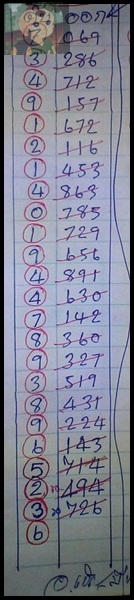 7 069
3 286
4 712
9 157
1 672
2 116
1 453
4 863
0 785
1 729
9 656
4 891
4 630
7 142
8 360
9 327
3 519
8 431
9 224
6 143
5 714
2 494
3 726
6